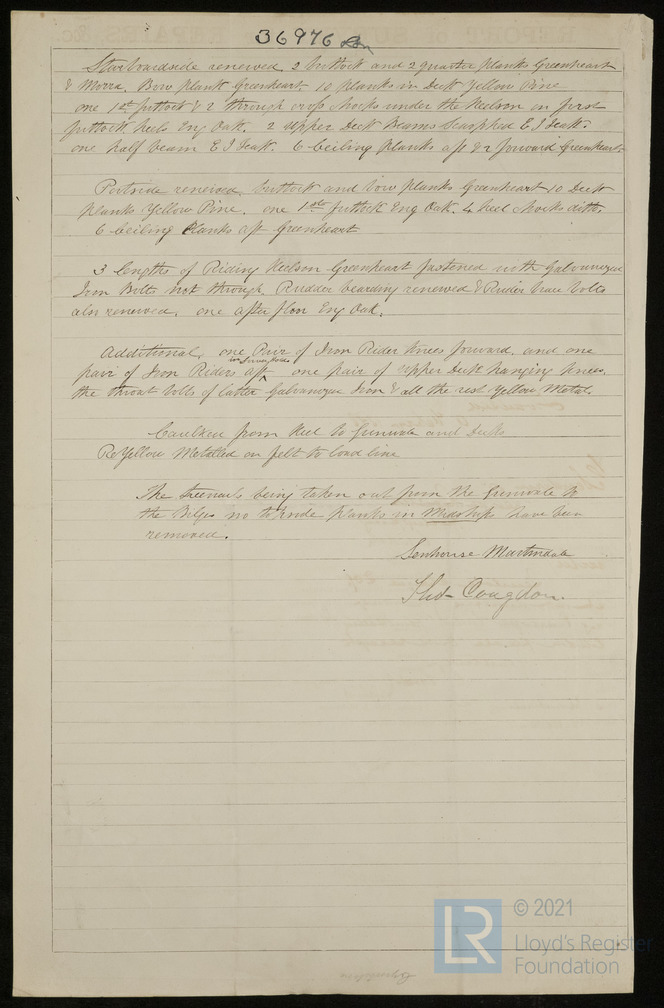 36976
Starboardside renewed 2 buttock and 2 quarter planks Greenheart
& Morra, Bow plank Greenheart 10 planks in Deck Yellow Pine
one 1st futtock & 2 through cross chocks under the Keelson on first
futtock heels Eng Oak. 2 upper Deck Beams Scarphed E I Teak.
one half beam E I Teak. 6 Ceiling planks aft & 2 forward Greenheart
Portside renewed buttock and bow planks Greenheart 10 Deck
planks Yellow Pine. one 1st futtock Eng Oak. 4 heel chocks ditto.
6 Ceiling planks aft Greenheart
3 lengths of Riding Keelson Greenheart fastened with Galvanized
Iron Bolts not through, Rudder bearding renewed & Rudder bolts
also renewed. one after floor Eng Oak.
Additional, one Pair of Iron Rider knees forward and one
pair of Iron Riders aft, one pair of upper Deck hanging knees.
the throat bolts of latter Galvanized Iron & all the rest Yellow Metal.
Caulked from Keel to Gunwale and Decks
Re Yellow Metalled on felt to load line
The treenails being taken out from the Gunwale to
the Bilges no topside planks in Midships have been
removed.
Senhouse Martindale
Thos Congdon.
© 2021
LR
Lloyd's Register
Foundation